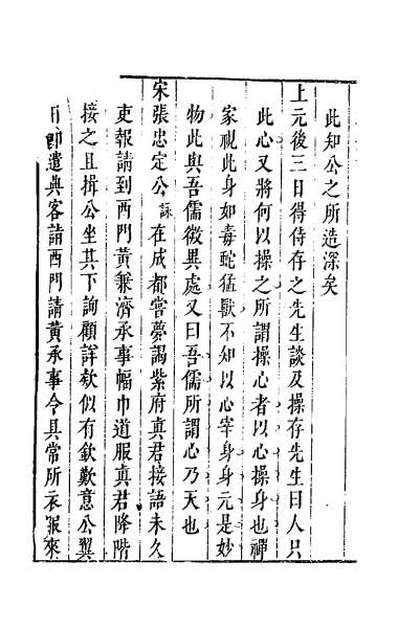 此知公之所造深矣
上元後三日得侍存之先生談及操存先生曰人只
此心又將何以操之所謂操心者以心操身也禪
家視此身如毒蛇猛獸不知以心宰身身元是妙
物此與吾儒微異處又曰吾儒所謂心乃天也
宋張忠定公詠在成都嘗夢謁紫府真君接語未久
吏報請到西門黃兼濟承事幅巾道服真君降階
接之且揖公坐其下詢顧詳欵似有欽歎意公翼
日即遣典客請西門請黃承事令具常所衣服來